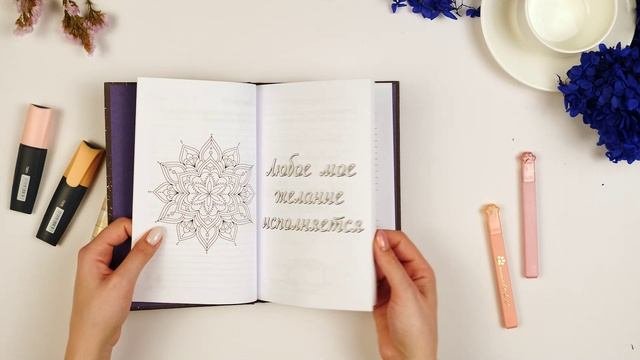 Любое мое
желание
исполняется